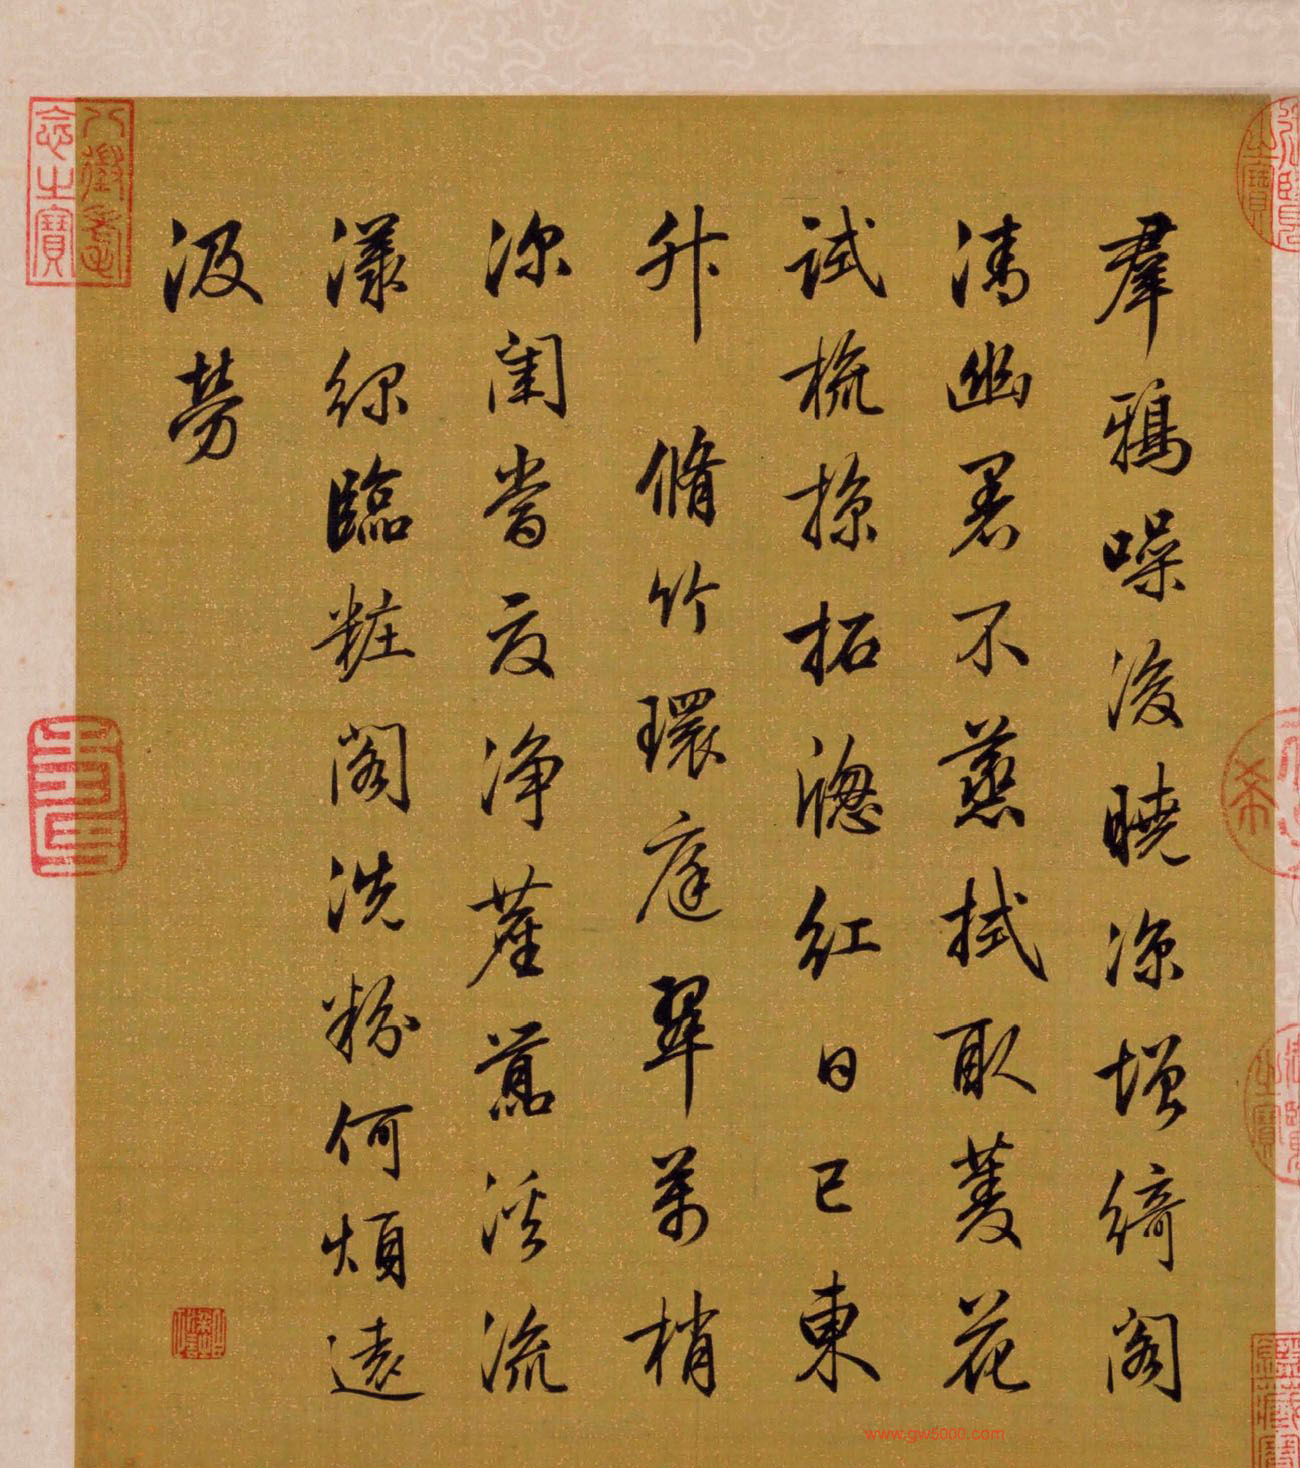 羣鴉噪後曉涼增綺閣
清幽暑不蒸拭取菱花
試梳掠拓窗紅日已東
升 脩竹環庭翠萬梢
深閨當夏净塵囂溪流
漾緑臨粧閣洗粉何煩遠
汲勞
八徵耄
念之寶
希
www.gw5000.com